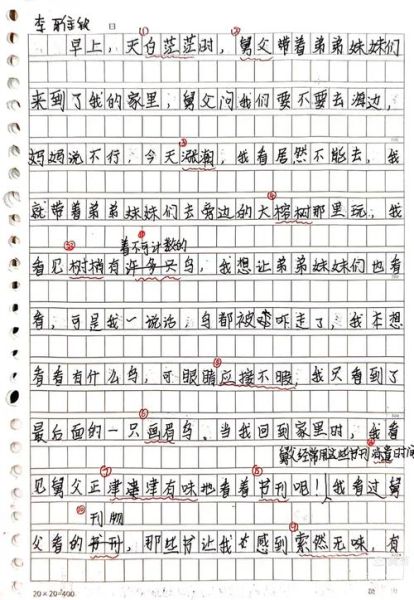 李
早上，天白茫茫时，舅父带着弟弟妹妹们
来到了我的家里，舅父问我们要不要去海边，
妈妈说不行，今天涨潮，我看居然不能去，我
就带着弟弟妹妹们去旁边的大榕树那里玩，我
着不可计数的
看见树梢有许多只鸟，我想让弟弟妹妹们也看
看，可是我一说话，鸟都被吓走了，我本想
看看有什么鸟，可眼睛应接不暇，我只看到了
最后面的一只画眉鸟。当我回到家里时，我看
舅父经常用这些书刊 时间
见舅父正津津有味地看着书刊呢！我看过舅
刊物
父看的书刊，那些书让我感到索然无味，有
20×20=400